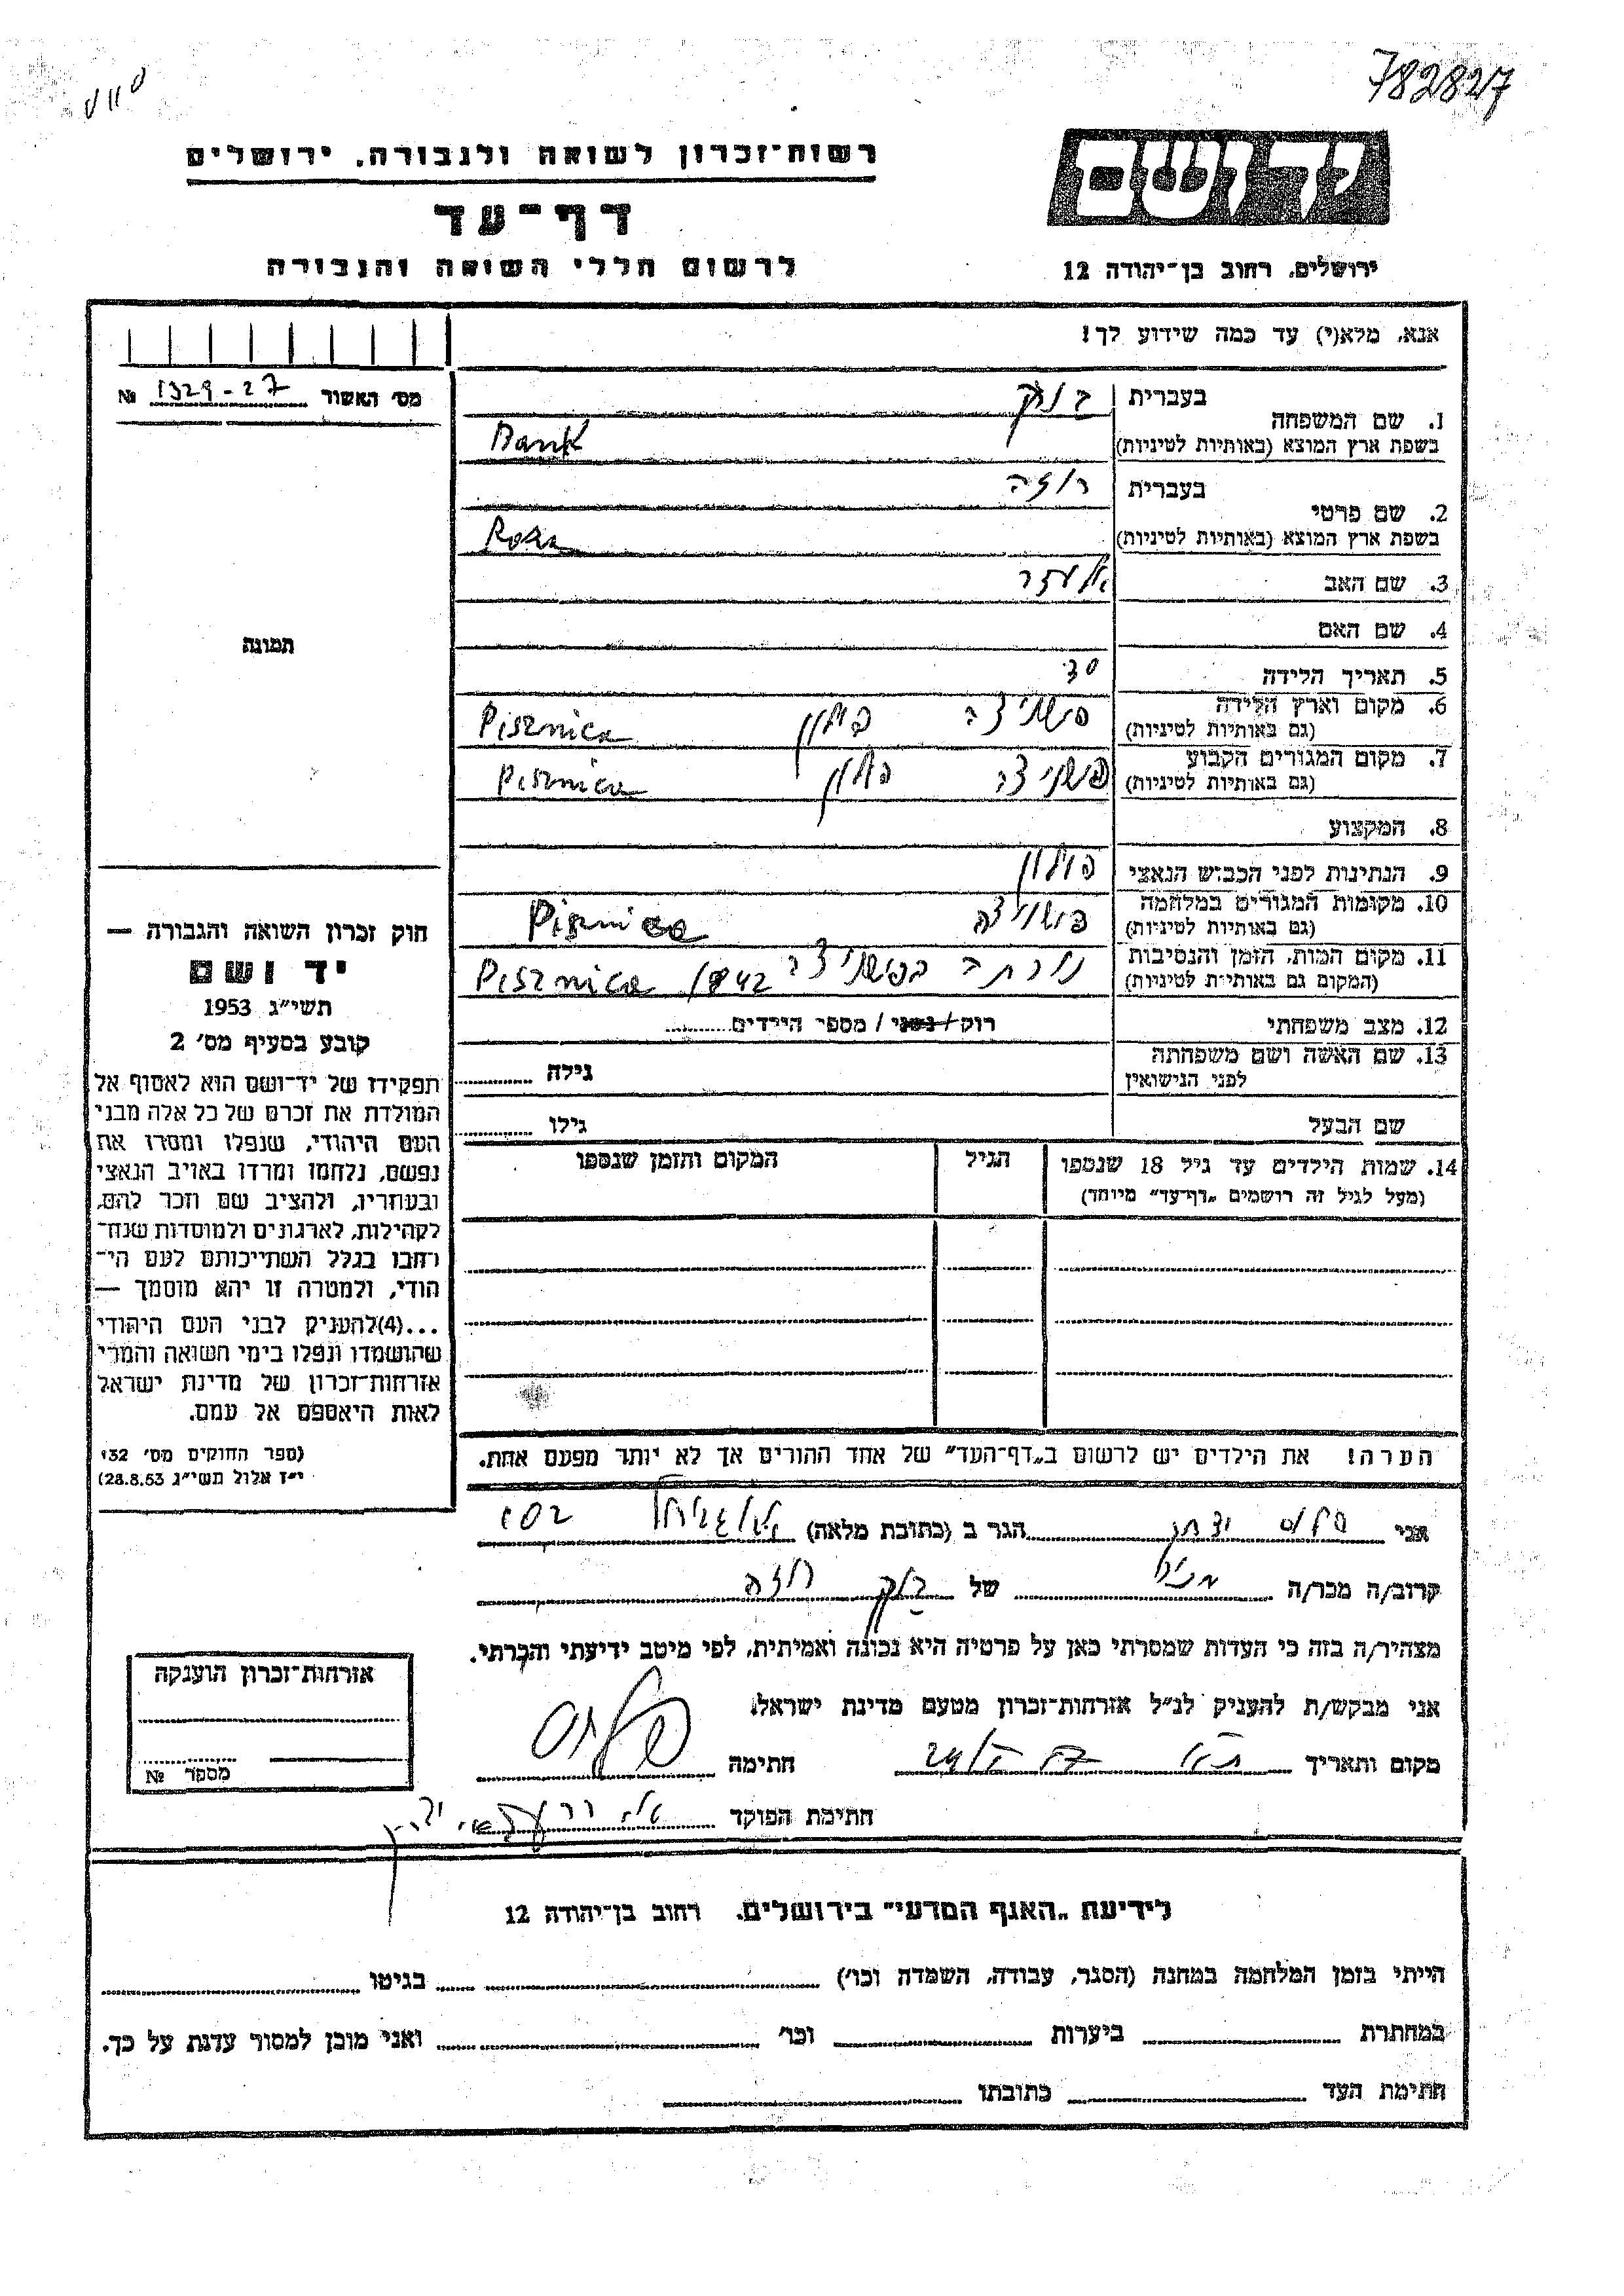 782827
רשות־זכרון לשואה ולגבורה, ירושלים
יד ושם
דף־עד
לרשום חללי השואה והגבורה
ירושלים, רחוב בן־יהודה 12
אנא, מלא(י) עד כמה שידוע לך!
מס׳ האשור 1329-27 №
1. שם המשפחה
בעברית בנק
בשפת ארץ המוצא (באותיות לטיניות) Bank
2. שם פרטי
בעברית רוזה
בשפת ארץ המוצא (באותיות לטיניות) Roza
3. שם האב
4. שם האם
5. תאריך הלידה 30
6. מקום וארץ הלידה
(גם באותיות לטיניות) פישניצה פולין Pisznica
7. מקום המגורים הקבוע
(גם באותיות לטיניות) פישניצה פולין Pisznica
8. המקצוע
9. הנתינות לפני הכבוש הנאצי פולין
10. מקומות המגורים במלחמה
(גם באותיות לטיניות) פישניצה Pisznica
11. מקום המות, הזמן והנסיבות
(המקום גם באותיות לטיניות) נורתה בפישניצה 1942 Pisznica
12. מצב משפחתי רוק/נשוי/ מספר הילדים
13. שם האשה ושם משפחתה
לפני הנישואין גילה
שם הבעל גילו
14. שמות הילדים עד גיל 18 שנספו
(מעל לגיל זה רושמים „דף־עד״ מיוחד)
הגיל
המקום והזמן שנספו
הערה! את הילדים יש לרשום ב„דף־העד״ של אחד ההורים אך לא יותר מפעם אחת.
תמונה
חוק זכרון השואה והגבורה —
יד ושם
תשי״ג 1953
קובע בסעיף מס׳ 2
תפקידו של יד־ושם הוא לאסוף אל
המולדת את זכרם של כל אלה מבני
העם היהודי, שנפלו ומסרו את
נפשם, נלחמו ומרדו באויב הנאצי
ובעוזריו, ולהציב שם וזכר להם,
לקהילות, לארגונים ולמוסדות שנח־
רחבו בגלל השתייכותם לעם הי־
הודי, ולמטרה זו יהא מוסמך —
...(4)להעניק לבני העם היהודי
שהושמדו ונפלו בימי השואה והמרי
אזרחות־זכרון של מדינת ישראל
לאות היאספם אל עמם.
(ספר החוקים מס׳ 132
י״ז אלול תשי״ג 28.8.53)
אני יצחק הגר ב (כתובת מלאה)
קרוב/ה מכר/ה של בנק רוזה
מצהיר/ה בזה כי העדות שמסרתי כאן על פרטיה היא נכונה ואמיתית, לפי מיטב ידיעתי והכרתי.
אני מבקש/ת להעניק לנ״ל אזרחות־זכרון מטעם מדינת ישראל.
מקום ותאריך חתימה
חתימת הפוקד
אזרחות־זכרון הוענקה
מספר №
לידיעת „האגף המדעי״ בירושלים, רחוב בן־יהודה 12
הייתי בזמן המלחמה במחנה (הסגר, עבודה, השמדה וכו׳) בגיטו
במחתרת ביערות וכו׳ ואני מוכן למסור עדות על כך.
חתימת העד כתובתו